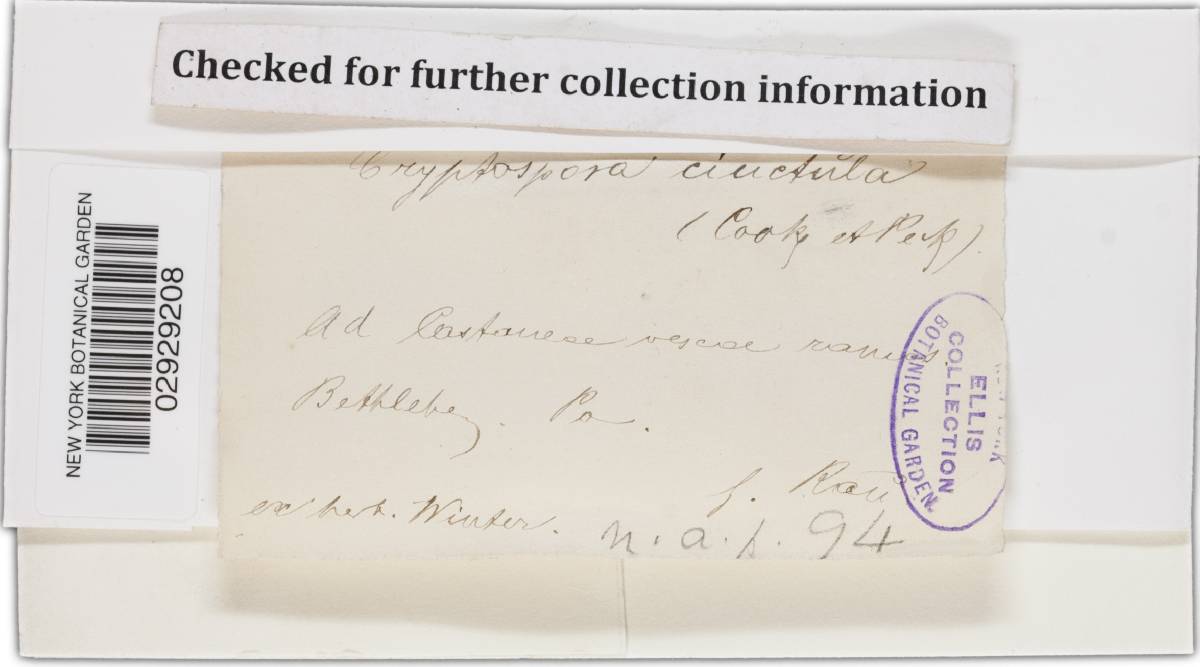 Checked for further collection information
NEW YORK BOTANICAL GARDEN
02929208
Cryptospora cinctula
(Cooke et Peck).
Ad Castaneae vescae ramos
Bethlehem. Pa.
ex herb. Winter.
G. Rau
n. a. f. 94
NEW YORK
ELLIS
COLLECTION
BOTANICAL GARDEN